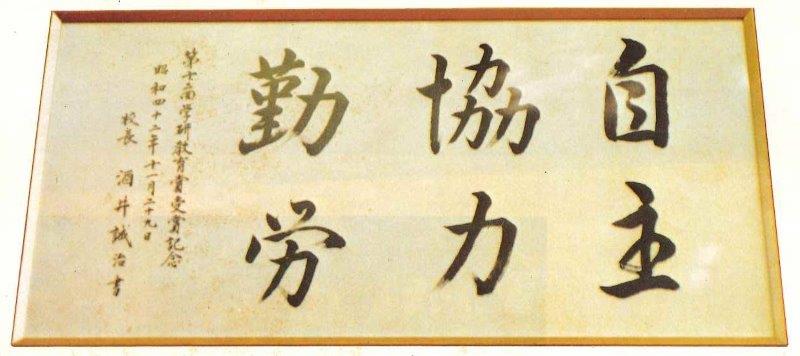 自主
協力
勤労
第十二回学研教育賞受賞記念
昭和四十二年十一月二十九日
校長 酒井誠治書